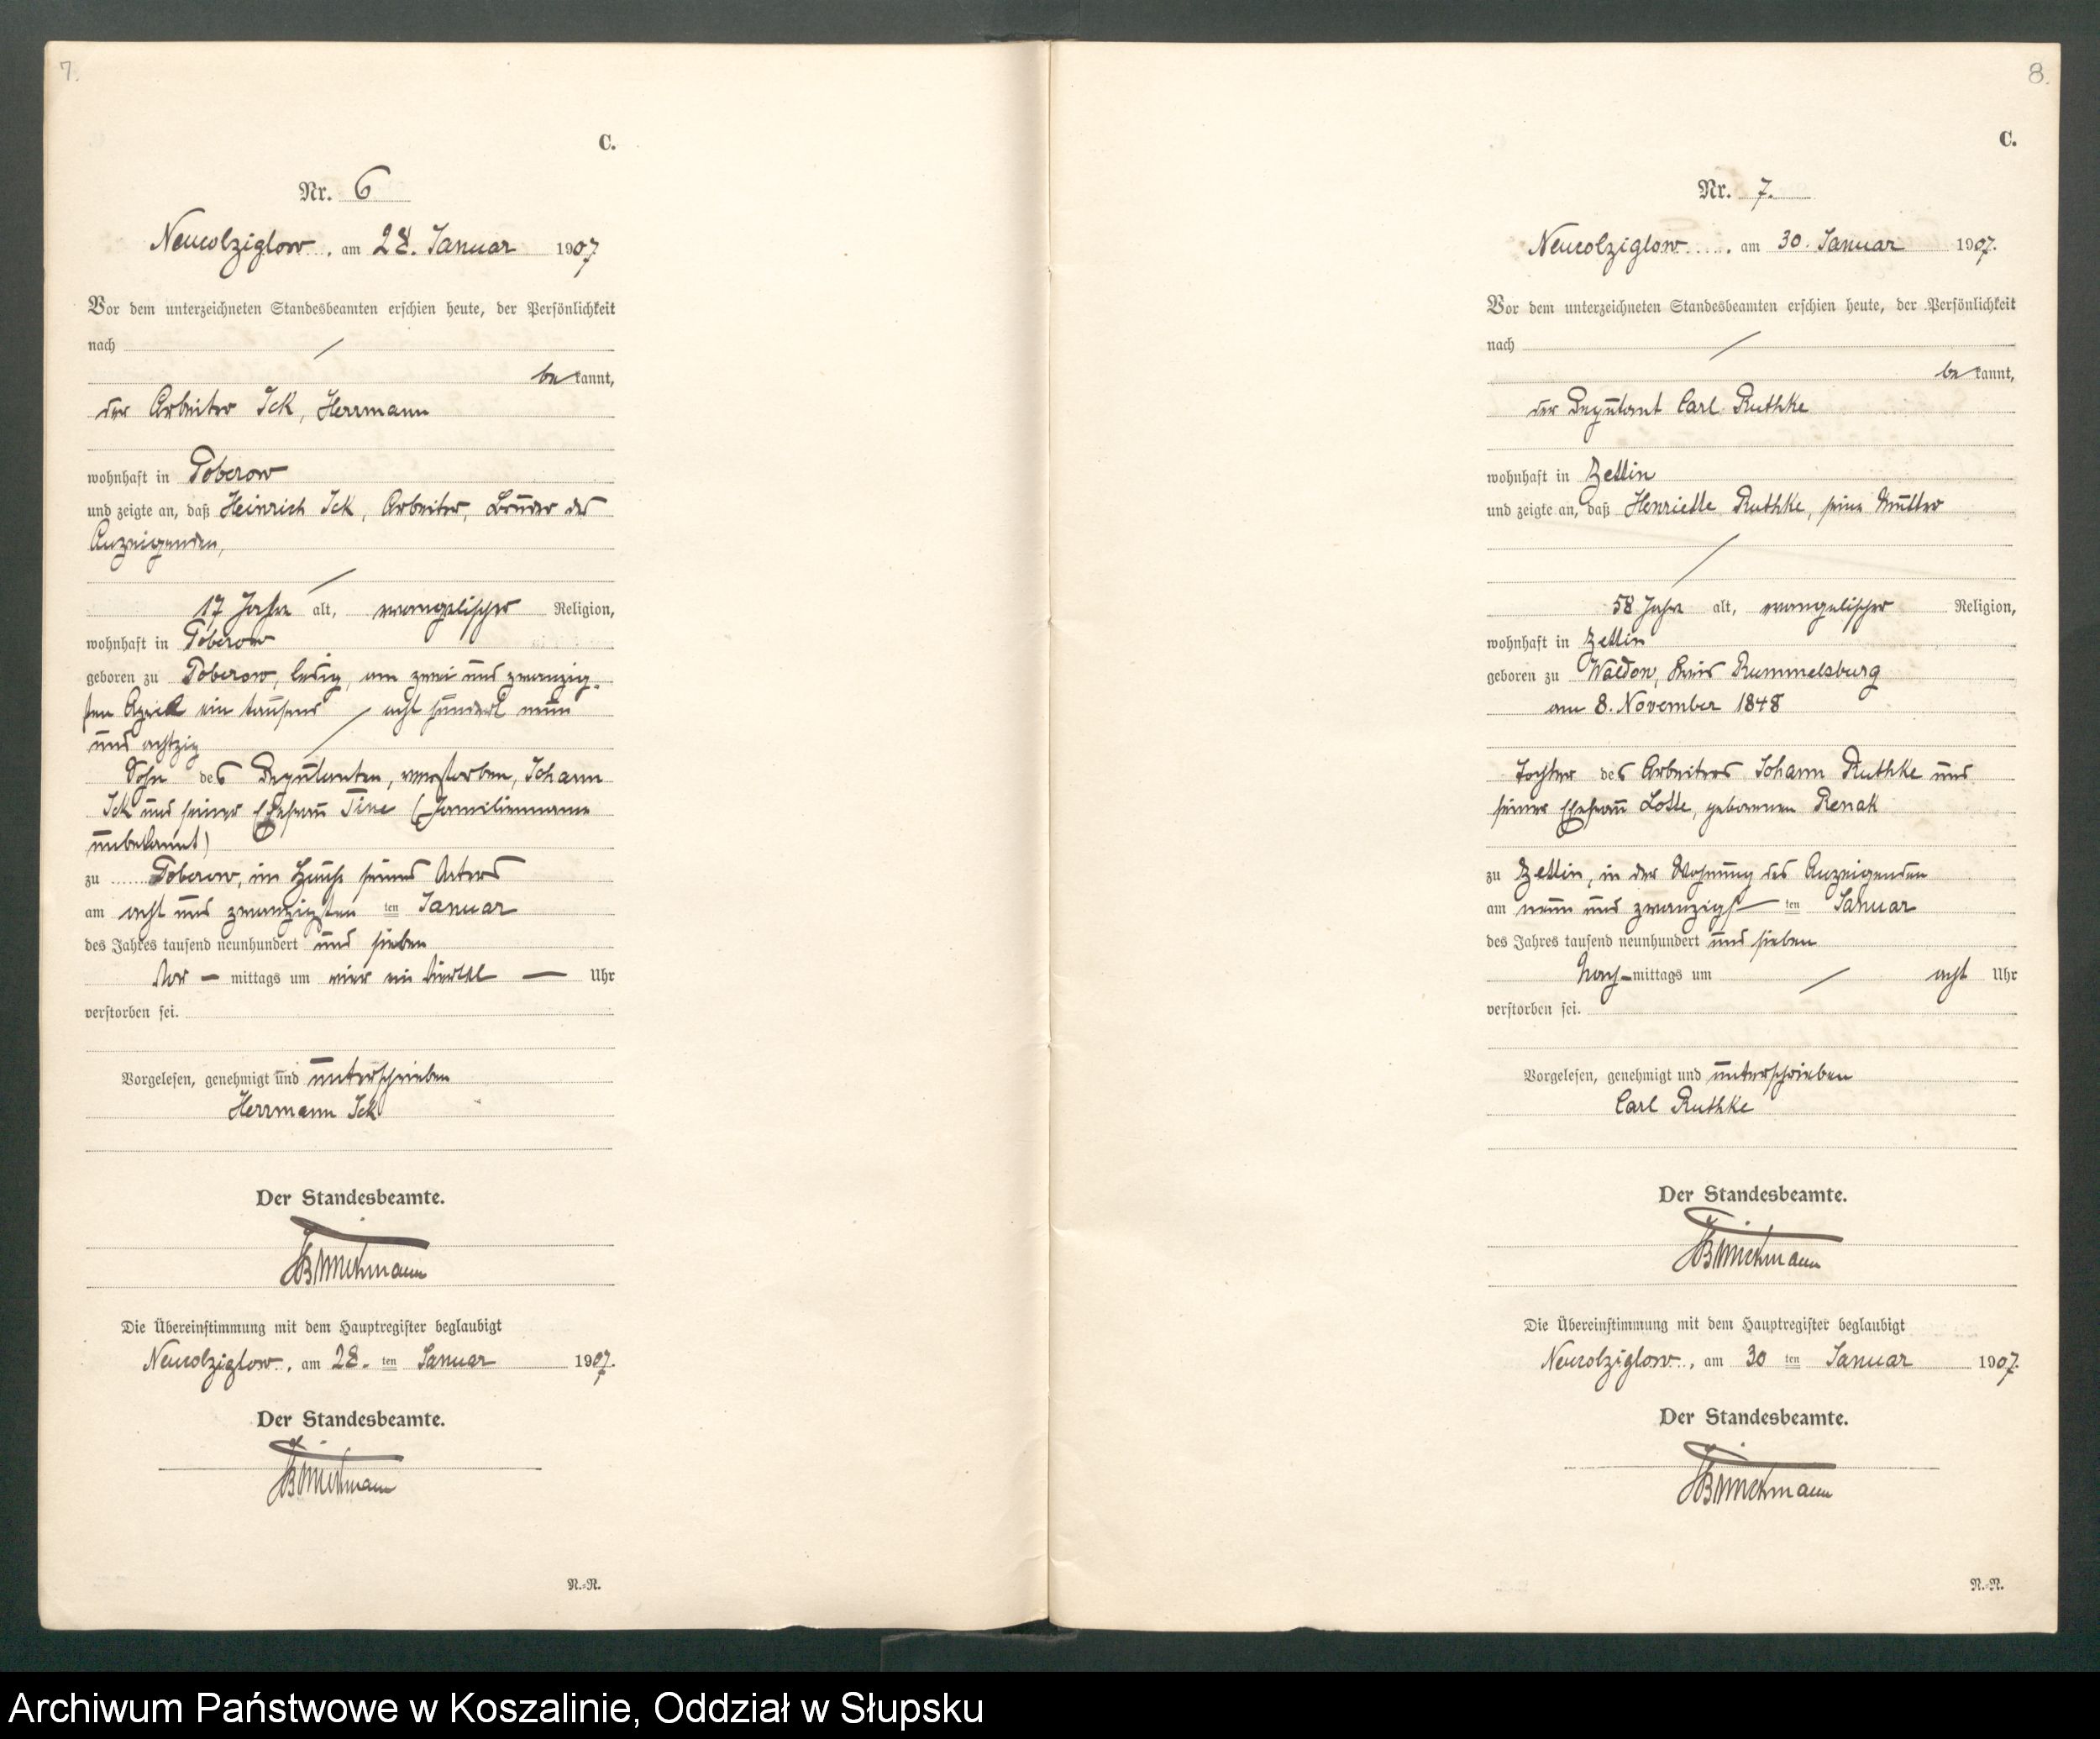 7.
C.
Nr. 6
Neukolziglow, am 28. Januar 1907
Vor dem unterzeichneten Standesbeamten erschien heute, der Persönlichkeit
nach
be kannt,
der Arbeiter Ick, Herrmann
wohnhaft in Poberow
und zeigte an, daß Heinrich Ick, Arbeiter, Bruder des
Anzeigenden,
17 Jahre alt, evangelischer Religion,
wohnhaft in Poberow
geboren zu Poberow, ledig, am zwei und zwanzig-
sten April ein tausend acht hundert neun
und achtzig
Sohn des Deputanten, verstorben, Johann
Ick und seiner Ehefrau Tine (Familienname
unbekannt)
zu Poberow, im Hause seines
am acht und zwanzigsten ten Januar
des Jahres tausend neunhundert und sieben
Vor - mittags um vier ein Viertel Uhr
verstorben sei.
Vorgelesen, genehmigt und unterschrieben
Herrmann Ick
Der Standesbeamte.
Die Übereinstimmung mit dem Hauptregister beglaubigt
Neukolziglow, am 28. ten Januar 1907.
Der Standesbeamte.
N.-N.
8.
C.
Nr. 7.
Neukolziglow, am 30. Januar 1907.
Vor dem unterzeichneten Standesbeamten erschien heute, der Persönlichkeit
nach
be kannt,
der Deputant Carl Ruthke
wohnhaft in Zettin
und zeigte an, daß Henriette Ruthke, seine Mutter
58 Jahre alt, evangelischer Religion,
wohnhaft in Zettin
geboren zu Waldow, Kreis Rummelsburg
am 8. November 1848
Tochter des Arbeiters Johann Ruthke und
seiner Ehefrau Lotte, geborenen Renak
zu Zettin, in der Wohnung des Anzeigenden
am neun und zwanzigsten ten Januar
des Jahres tausend neunhundert und sieben
Nach-mittags um acht Uhr
verstorben sei.
Vorgelesen, genehmigt und unterschrieben
Carl Ruthke
Der Standesbeamte.
Die Übereinstimmung mit dem Hauptregister beglaubigt
Neukolziglow, am 30 ten Januar 1907.
Der Standesbeamte.
N.-N.
Archiwum Państwowe w Koszalinie, Oddział w Słupsku